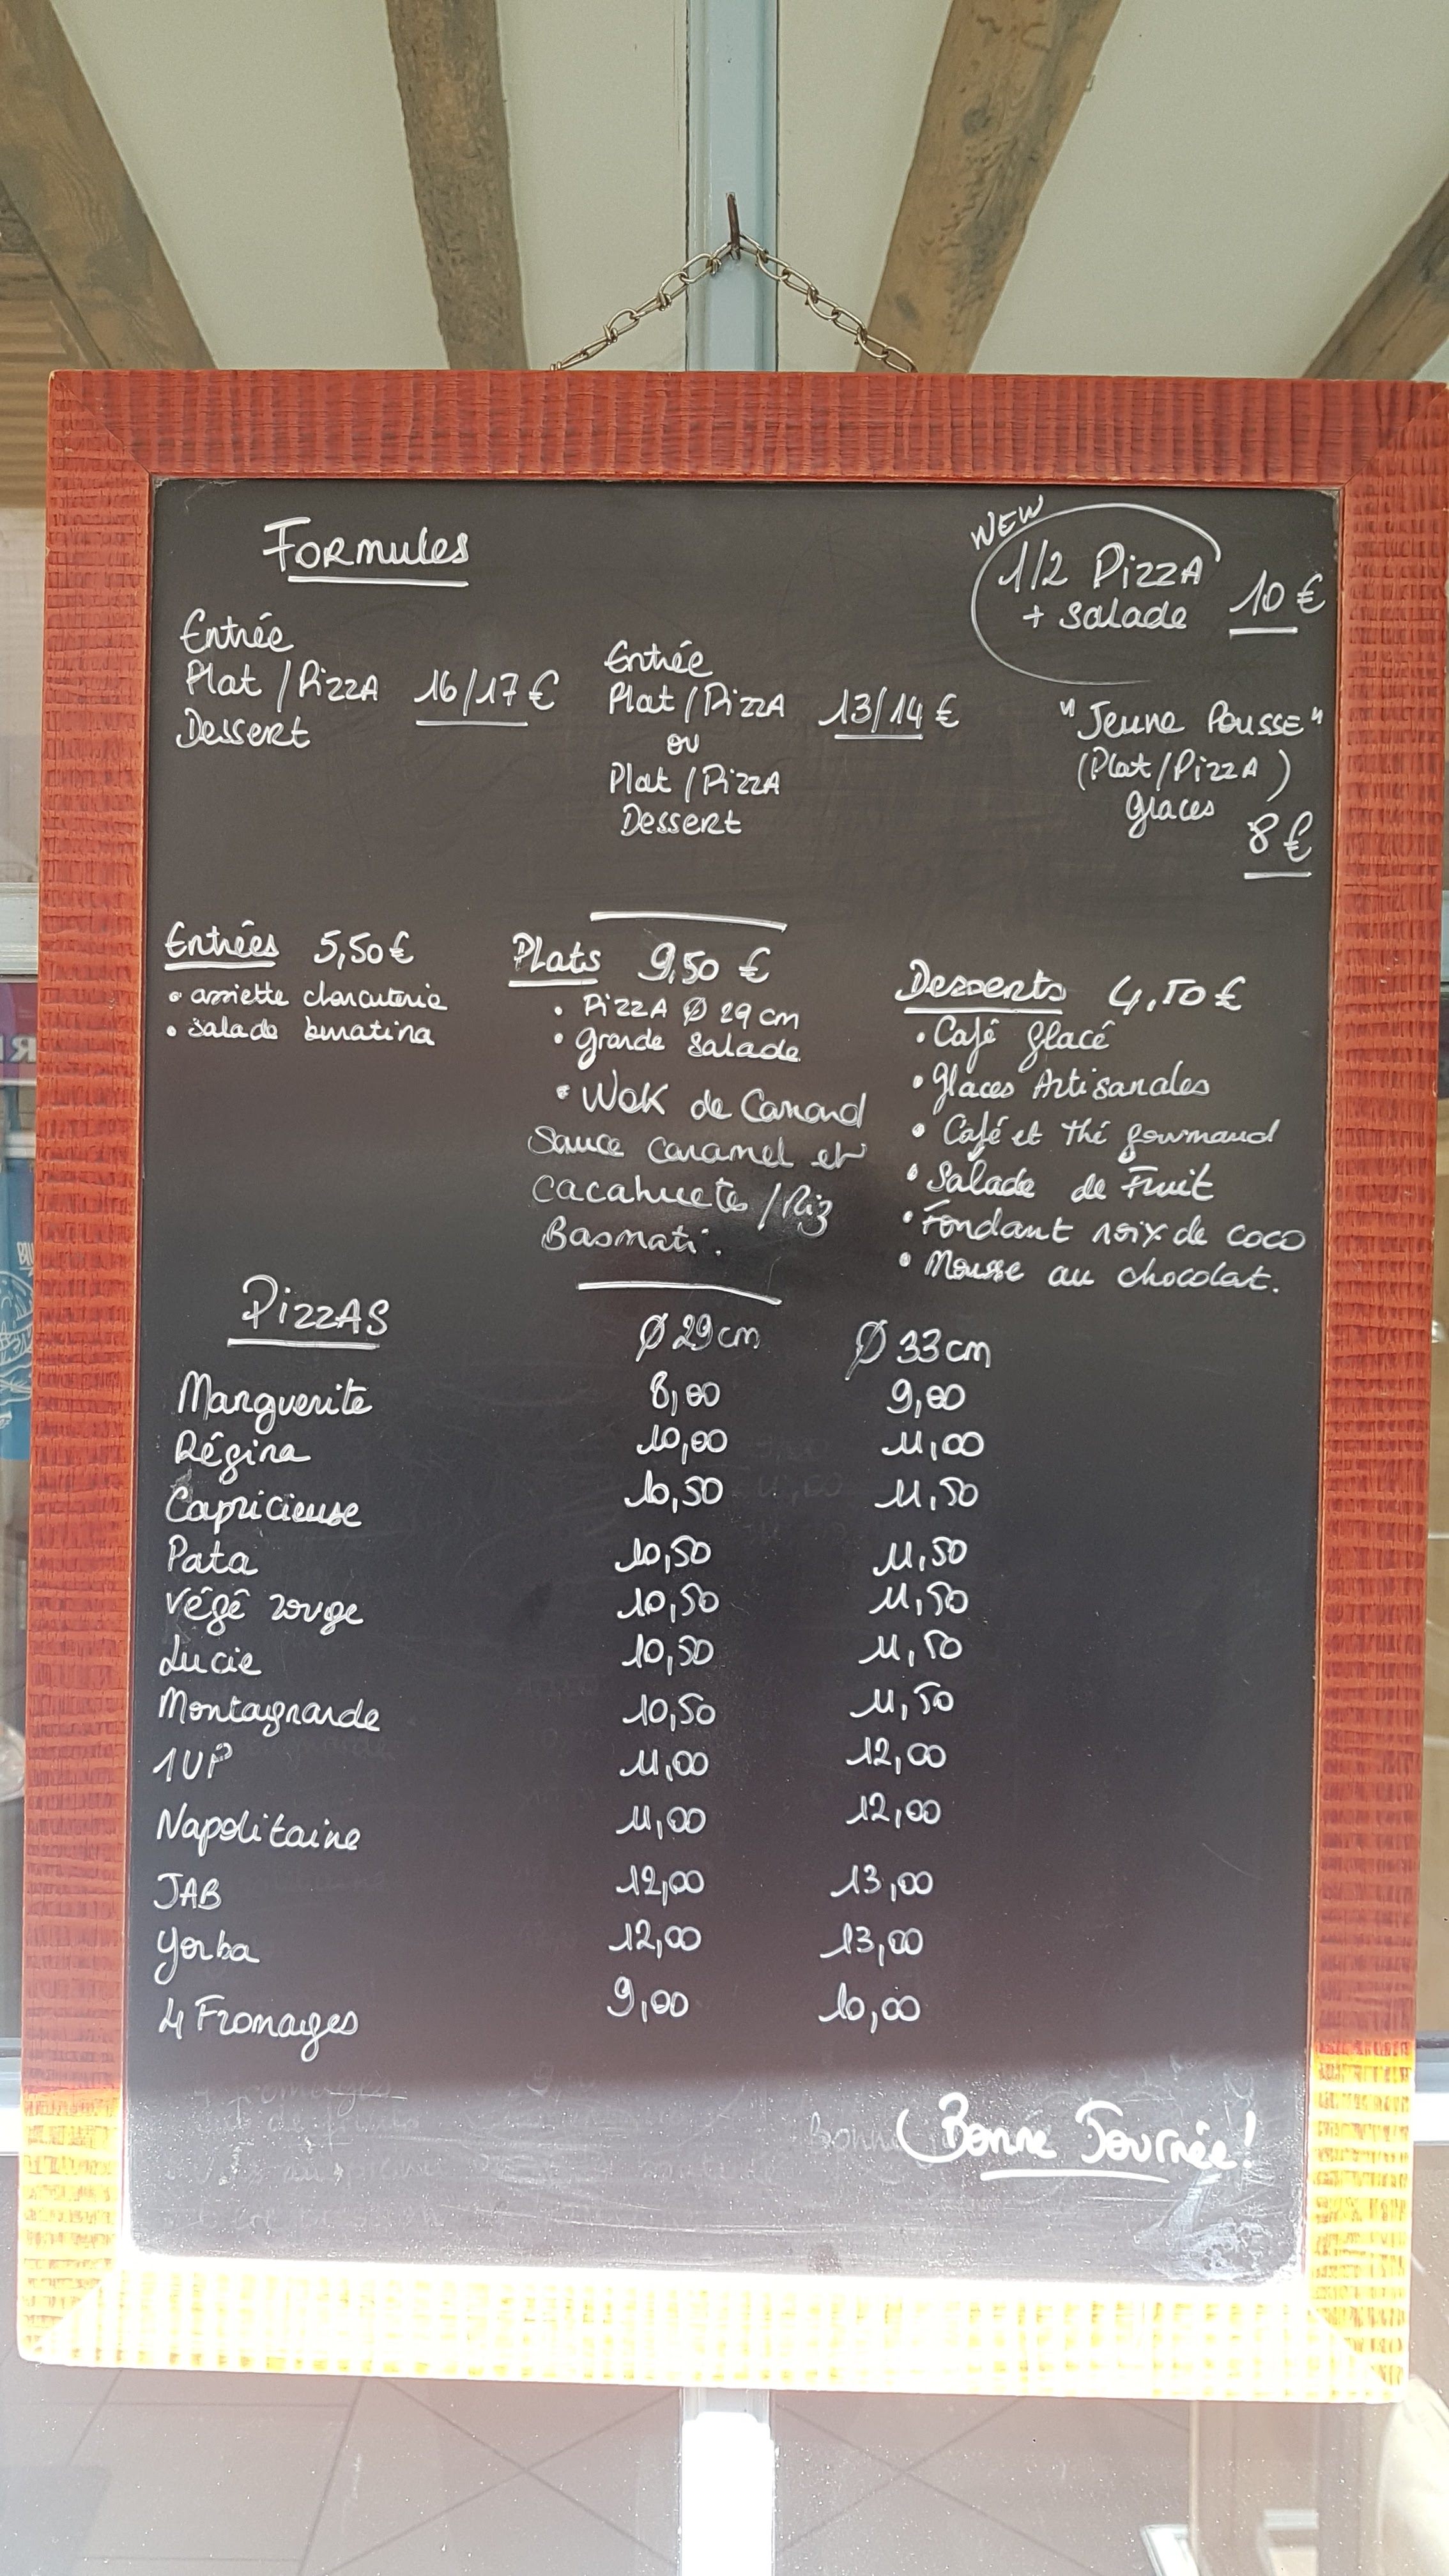 Formules
NEW
1/2 PizzA
+ Salade 10 €
Entrée
Plat / PizzA 16/17 €
Dessert
Entrée
Plat / PizzA 13/14 €
ou
Plat / PizzA
Dessert
"Jeune Pousse"
(Plat / PizzA)
glaces
8 €
Entrées 5,50 €
• assiette charcuterie
• Salade burratina
Plats 9,50 €
• PizzA Ø 29 cm
• grande Salade
• Wok de Canard
Sauce Caramel et
Cacahuete / Riz
Basmati.
Desserts 4,50 €
• Café glacé
• Glaces Artisanales
• Café et thé gourmand
• Salade de Fruit
• Fondant noix de coco
• Mousse au chocolat.
PizzAS Ø 29 cm Ø 33 cm
Marguerite 8,00 9,00
Régina 10,00 11,00
Capricieuse 10,50 11,50
Pata 10,50 11,50
Végé rouge 10,50 11,50
Lucie 10,50 11,50
Montagnarde 10,50 11,50
1UP 11,00 12,00
Napolitaine 11,00 12,00
JAB 12,00 13,00
Yorba 12,00 13,00
4 Fromages 9,00 10,00
Bonne Journée!